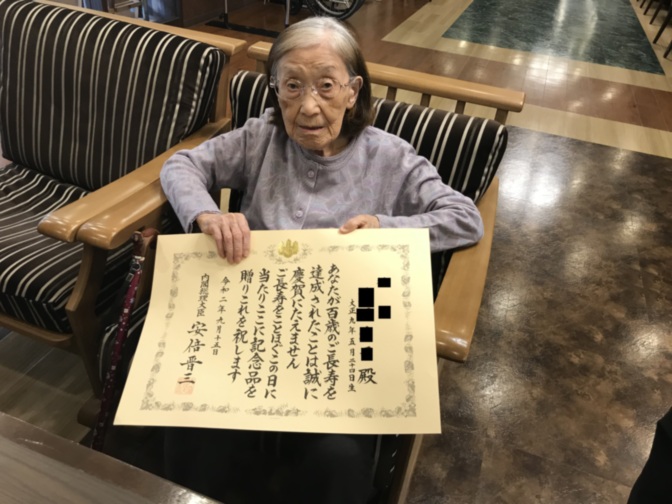 殿
大正九年五月二十四日生
あなたが百歳のご長寿を
達成されたことは誠に
慶賀にたえません
ご長寿をことほぐこの日に
当たりここに記念品を
贈りこれを祝します
令和二年九月十五日
内閣総理大臣 安倍晋三